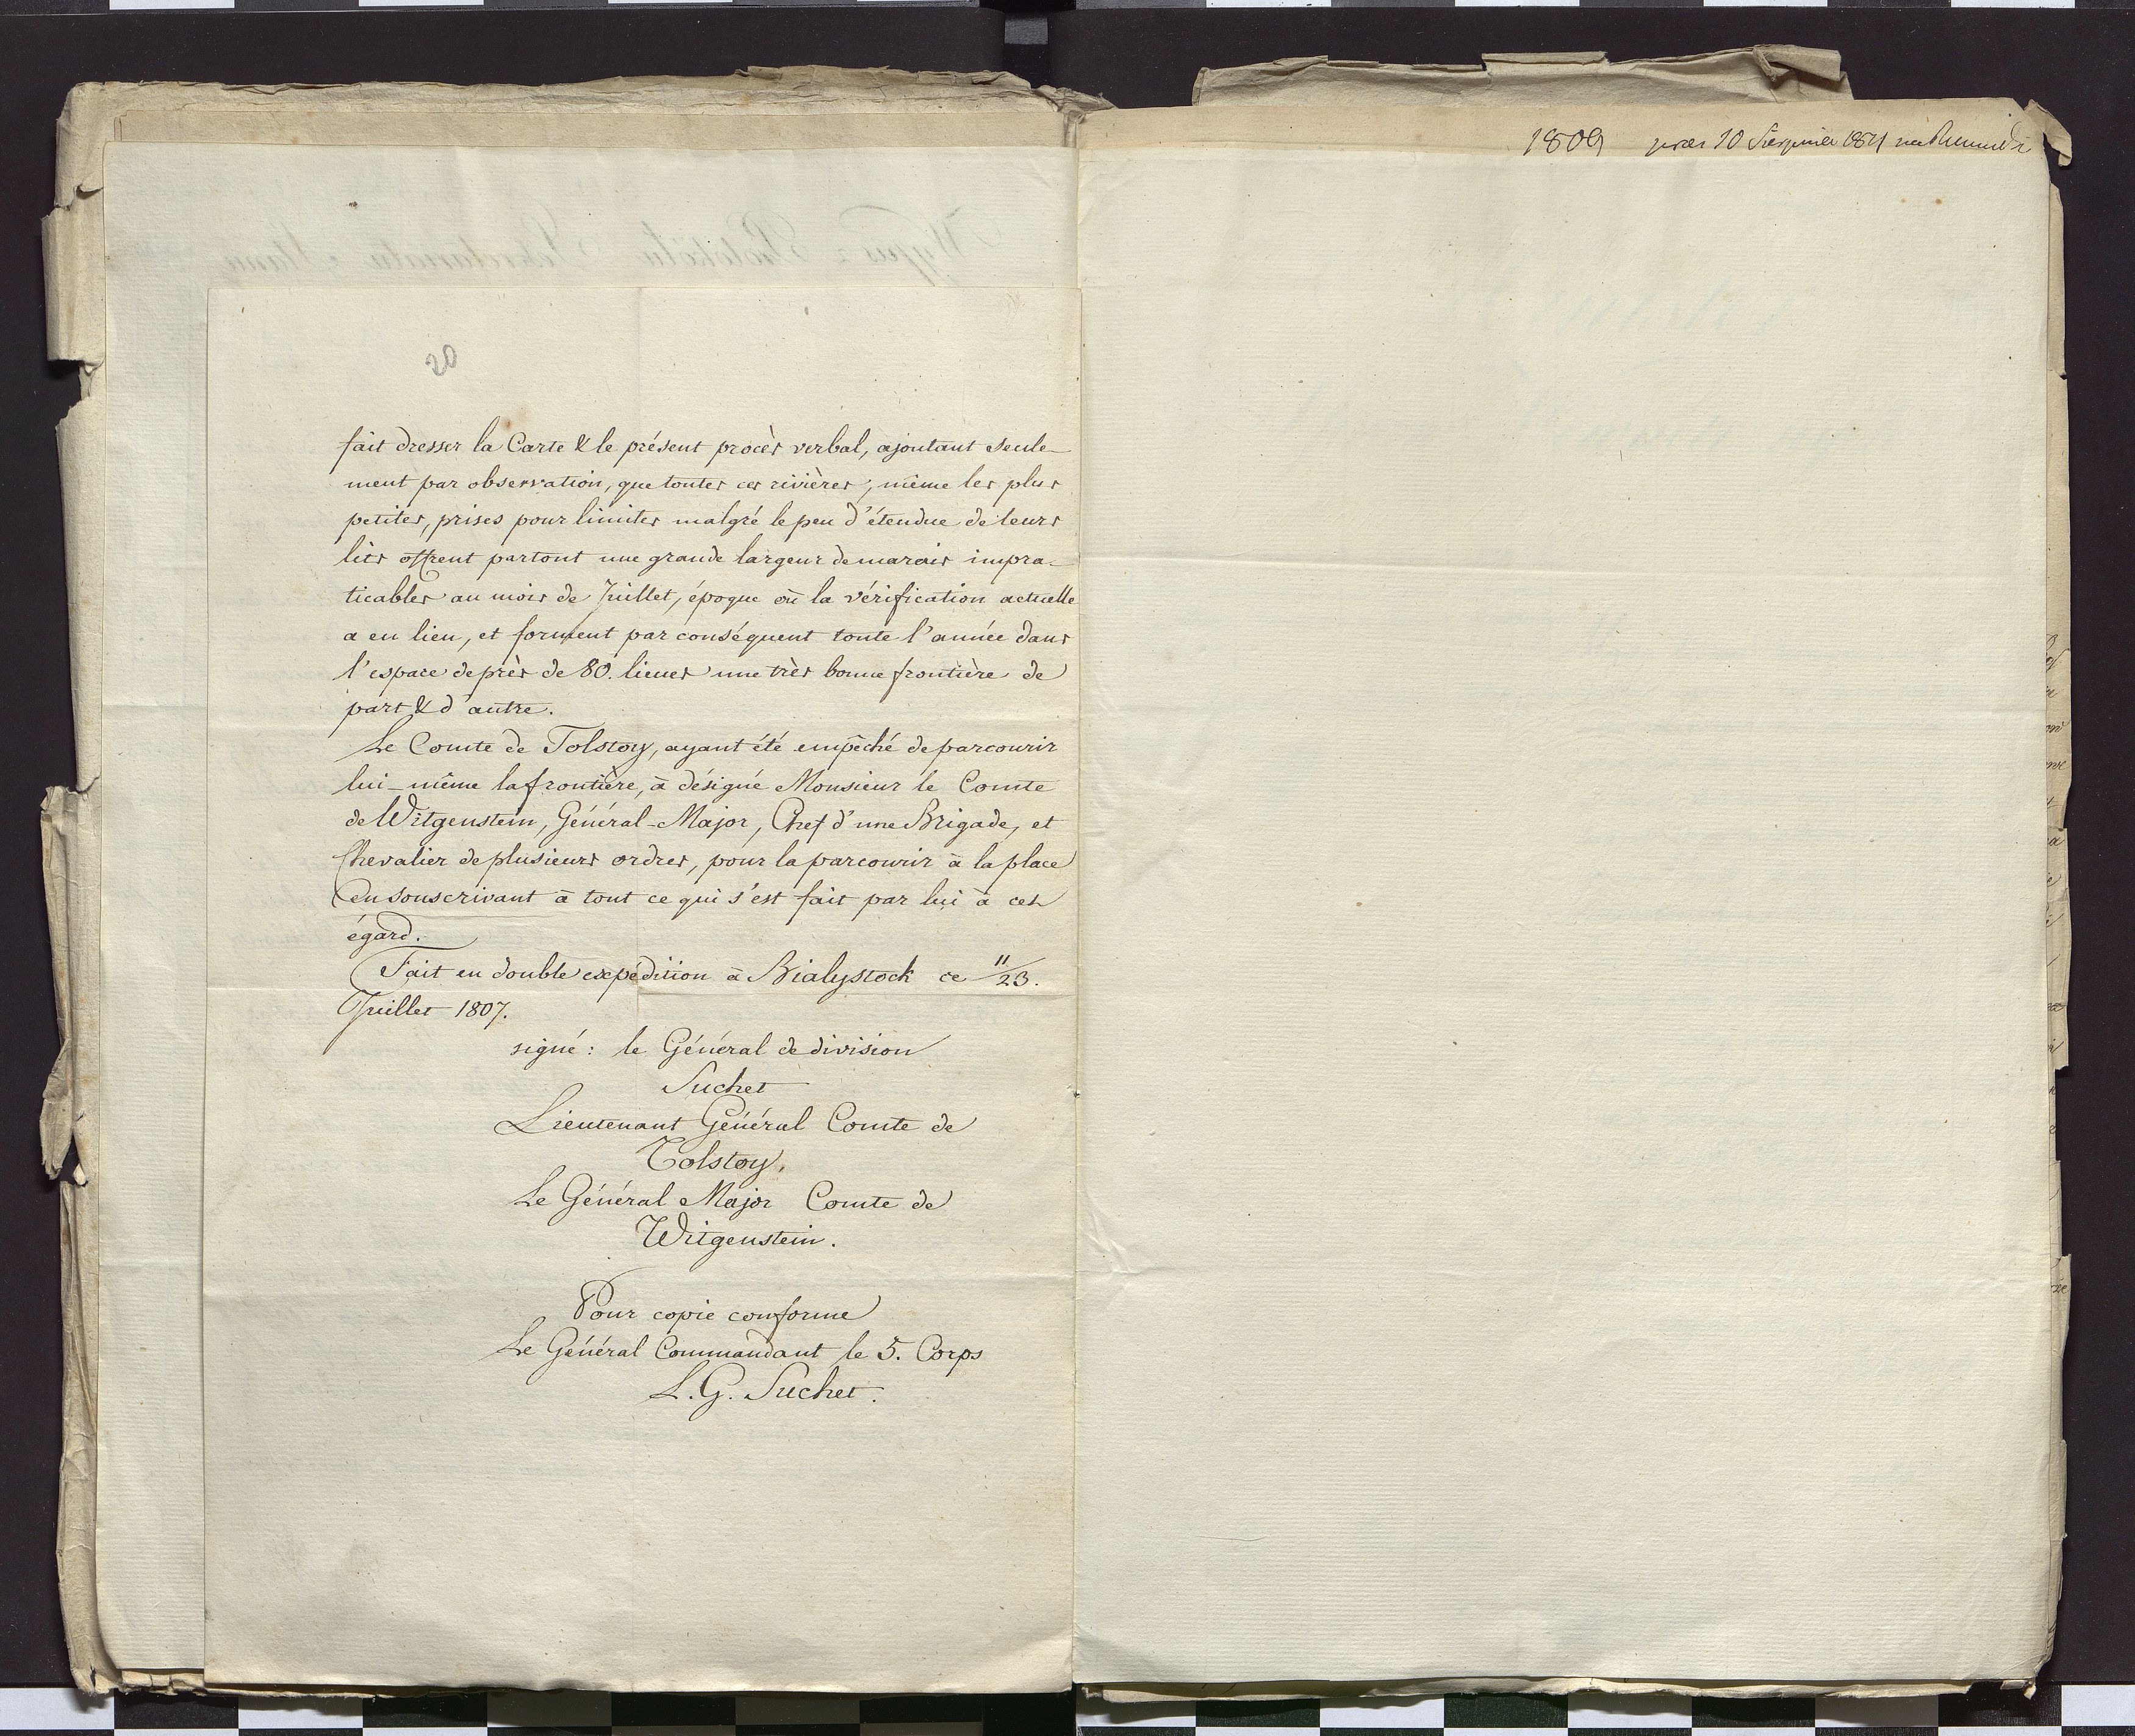 20
fait dresser la Carte & le présent procès verbal, ajoutant seule-
ment par observation, que toutes ces rivières, même les plus
petites, prises pour limites malgré le peu d'étendue de leurs
lits offrent partout une grande largeur de marais impra-
ticables au mois de Juillet, époque où la vérification actuelle
a eu lieu, et forment par conséquent toute l'année dans
l'espace de près de 80. lieues une très bonne frontière de
part & d'autre.
Le Comte de Tolstoy, ayant été empêché de parcourir
lui-même la frontière, à désigné Monsieur le Comte
de Witgenstein, Général-Major, Chef d'une Brigade, et
Chevalier de plusieurs ordres, pour la parcourir à la place
en souscrivant à tout ce qui s'est fait par lui à cet
égard.
Fait en double expédition à Bialystock ce 11/23.
Juillet 1807.
signé: le Général de division
Suchet
Lieutenant Général Comte de
Tolstoy,
Le Général Major Comte de
Witgenstein.
Pour copie conforme
Le Général Commandant le 5. Corps
L. G. Suchet.
1809 10 Sierpnia